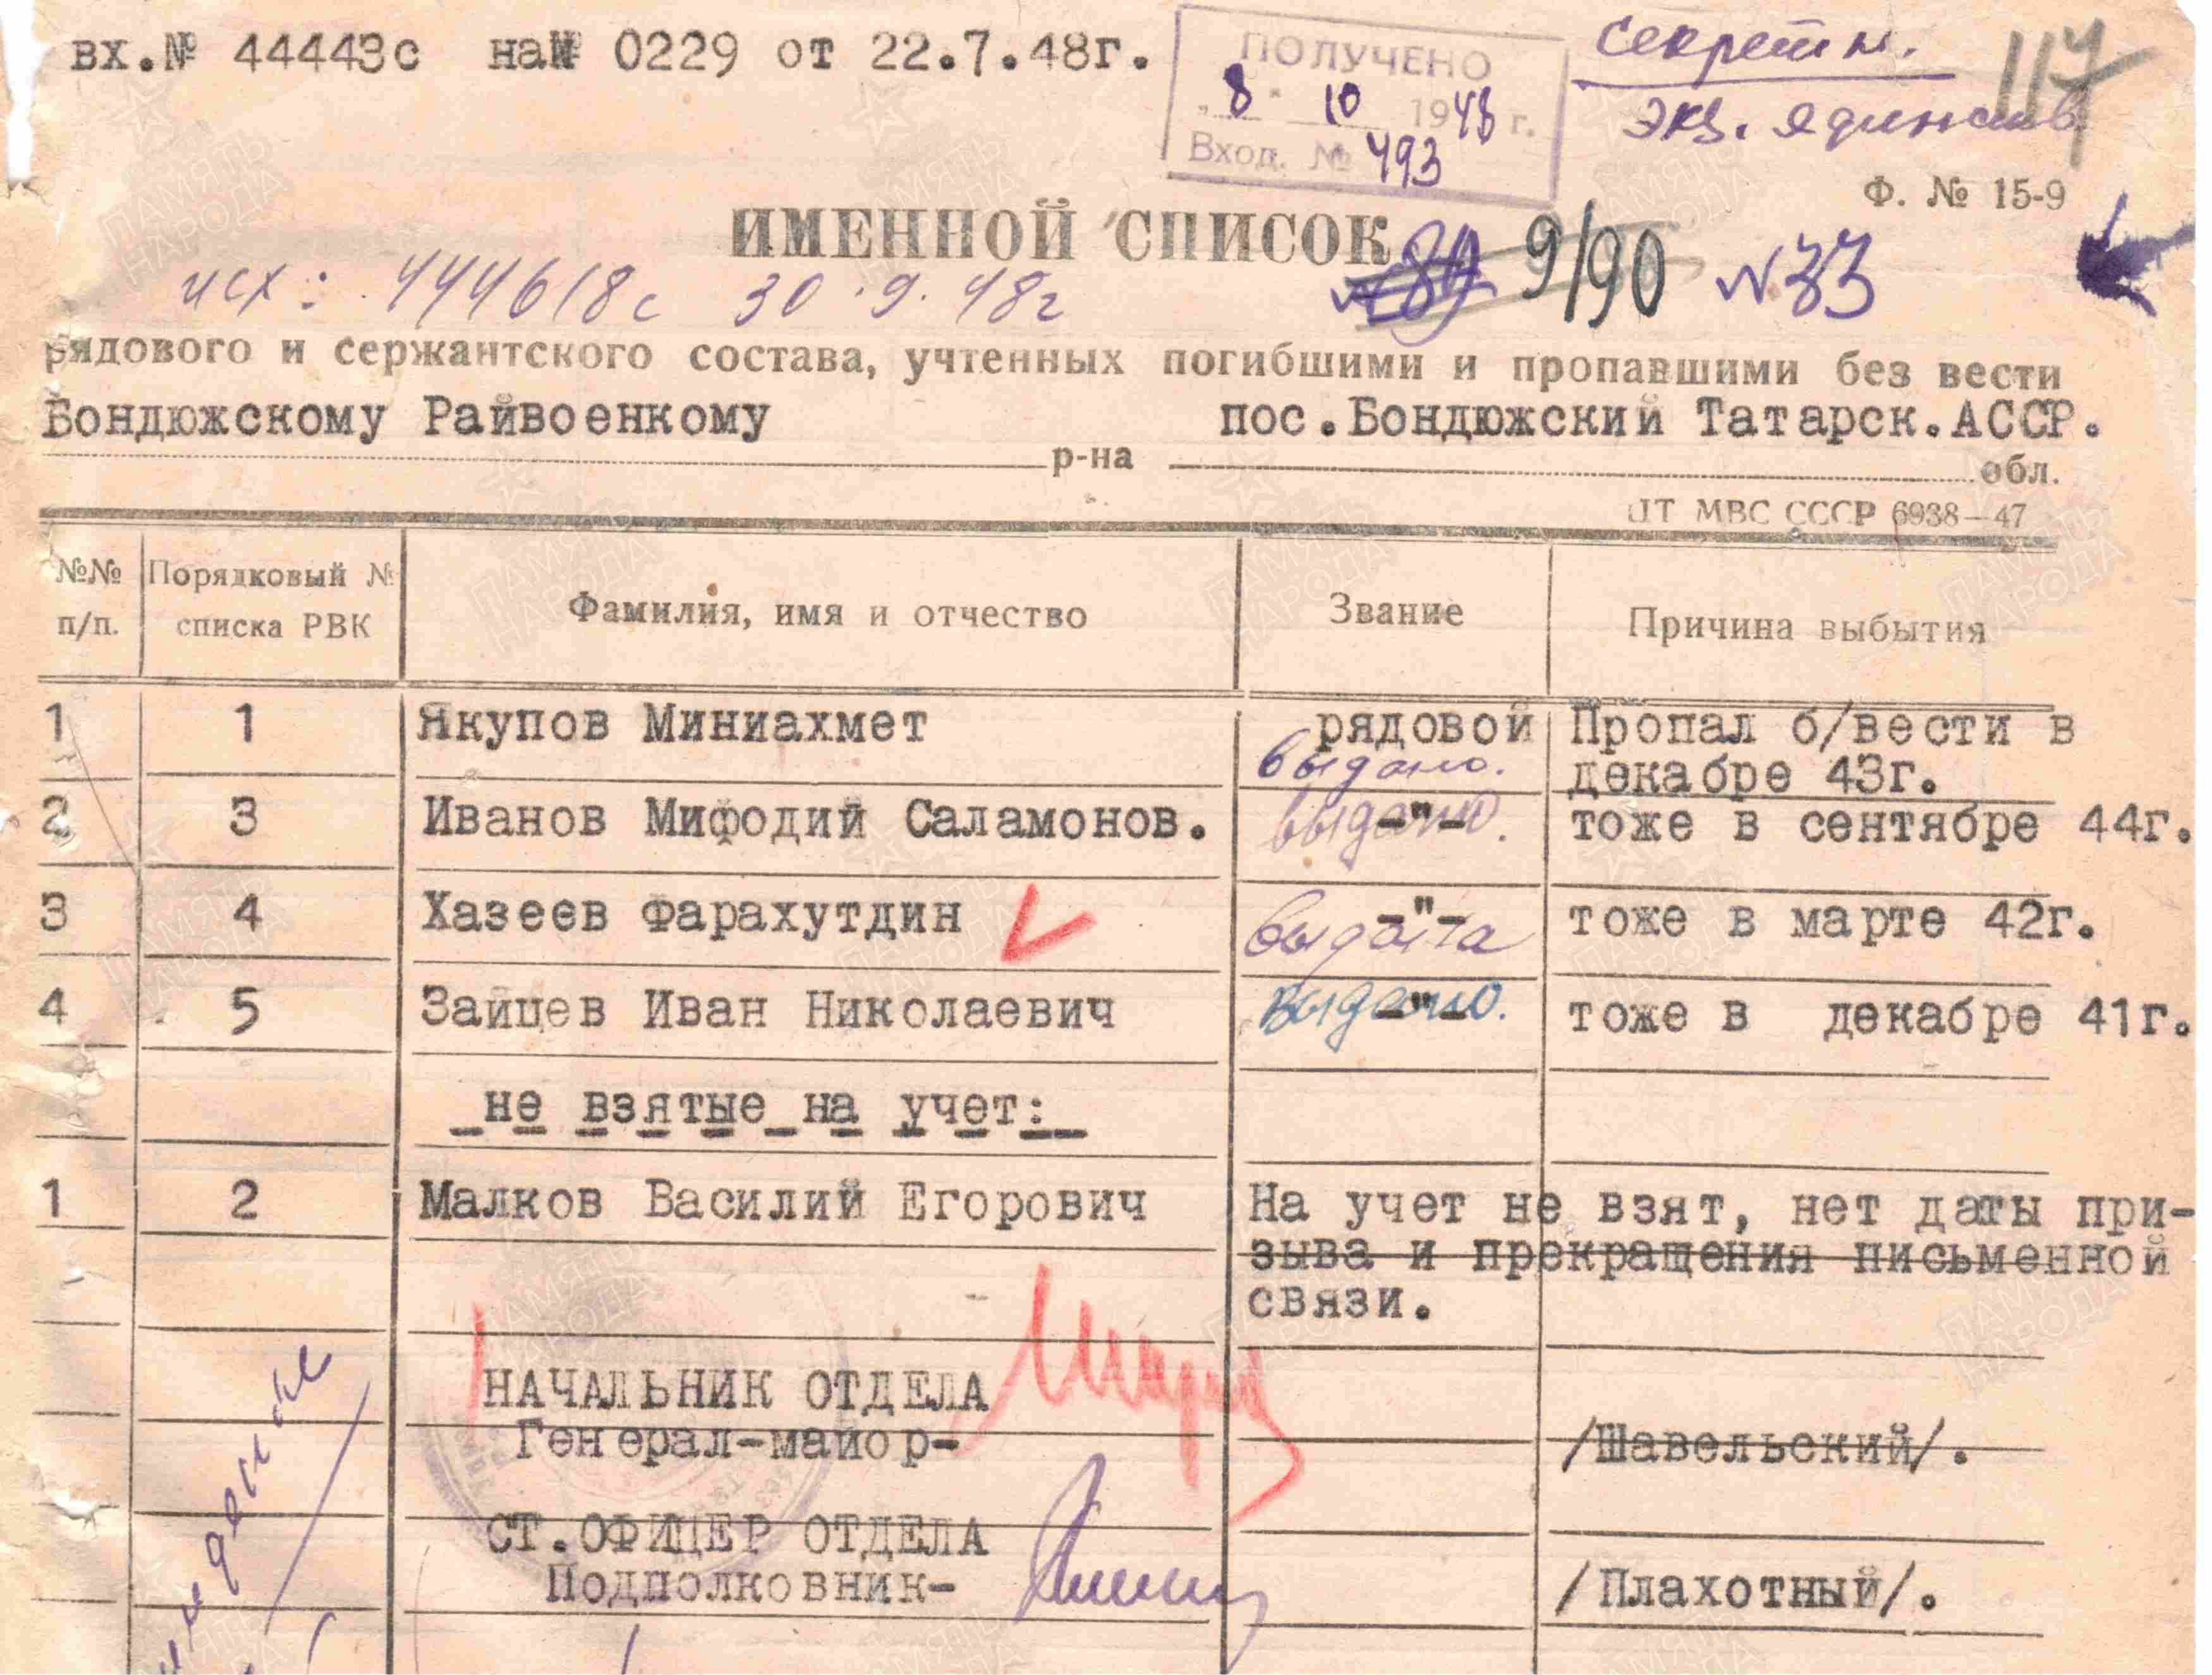 вх.№ 44443с на№ 0229 от 22.7.48г.
ПОЛУЧЕНО
"8" 10 1948 г.
Вход. № 493
секретн.
экз.
117
Ф. № 15-9
ИМЕННОЙ СПИСОК
№89 9/90 №33
исх: 444618с 30.9.48г
рядового и сержантского состава, учтенных погибшими и пропавшими без вести
Бондюжскому Райвоенкому р-на пос.Бондюжский Татарск.АССР. обл.
ЦТ МВС СССР 6938—47
№№ п/п. Порядковый № списка РВК Фамилия, имя и отчество Звание Причина выбытия
1 1 Якупов Миниахмет рядовой Пропал б/вести в
выдано. декабре 43г.
2 3 Иванов Мифодий Саламонов. -"- выдано. тоже в сентябре 44г.
3 4 Хазеев Фарахутдин -"- выдата тоже в марте 42г.
4 5 Зайцев Иван Николаевич -"- выдано. тоже в декабре 41г.
не взятые на учет:
1 2 Малков Василий Егорович На учет не взят, нет даты при-
зыва и прекращения письменной
связи.
НАЧАЛЬНИК ОТДЕЛА
Генерал-майор- /Шавельский/.
СТ.ОФИЦЕР ОТДЕЛА
Подполковник- /Плахотный/.
ПАМЯТЬ НАРОДА